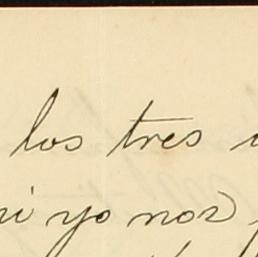 los tres
yo nos